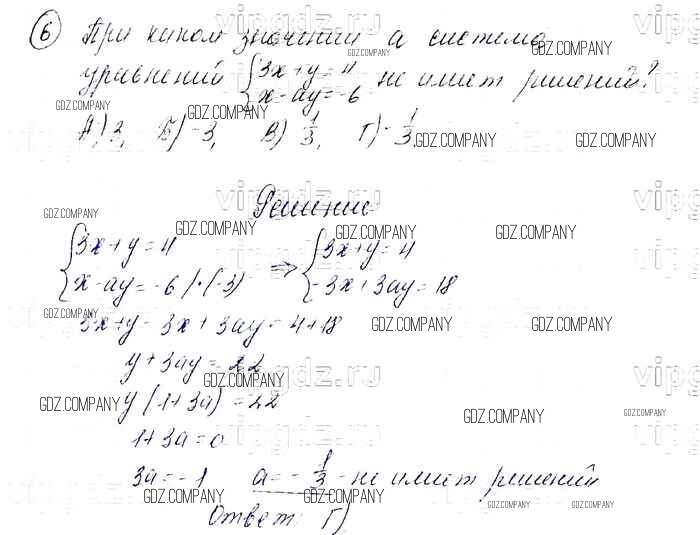 6 При каком значении a система
уравнений {3x+y=4 не имеет решений?
x-ay=-6
А) 3, Б) -3, В) 1/3, Г) -1/3.
Решение
{3x+y=4 => {3x+y=4
x-ay=-6 |·(-3) -3x+3ay=18
3x+y-3x+3ay=4+18
y+3ay=22
y(1+3a)=22
1+3a=0
3a=-1 a=-1/3 - не имеет решений
Ответ: Г)
vipgdz.ru
GDZ.COMPANY